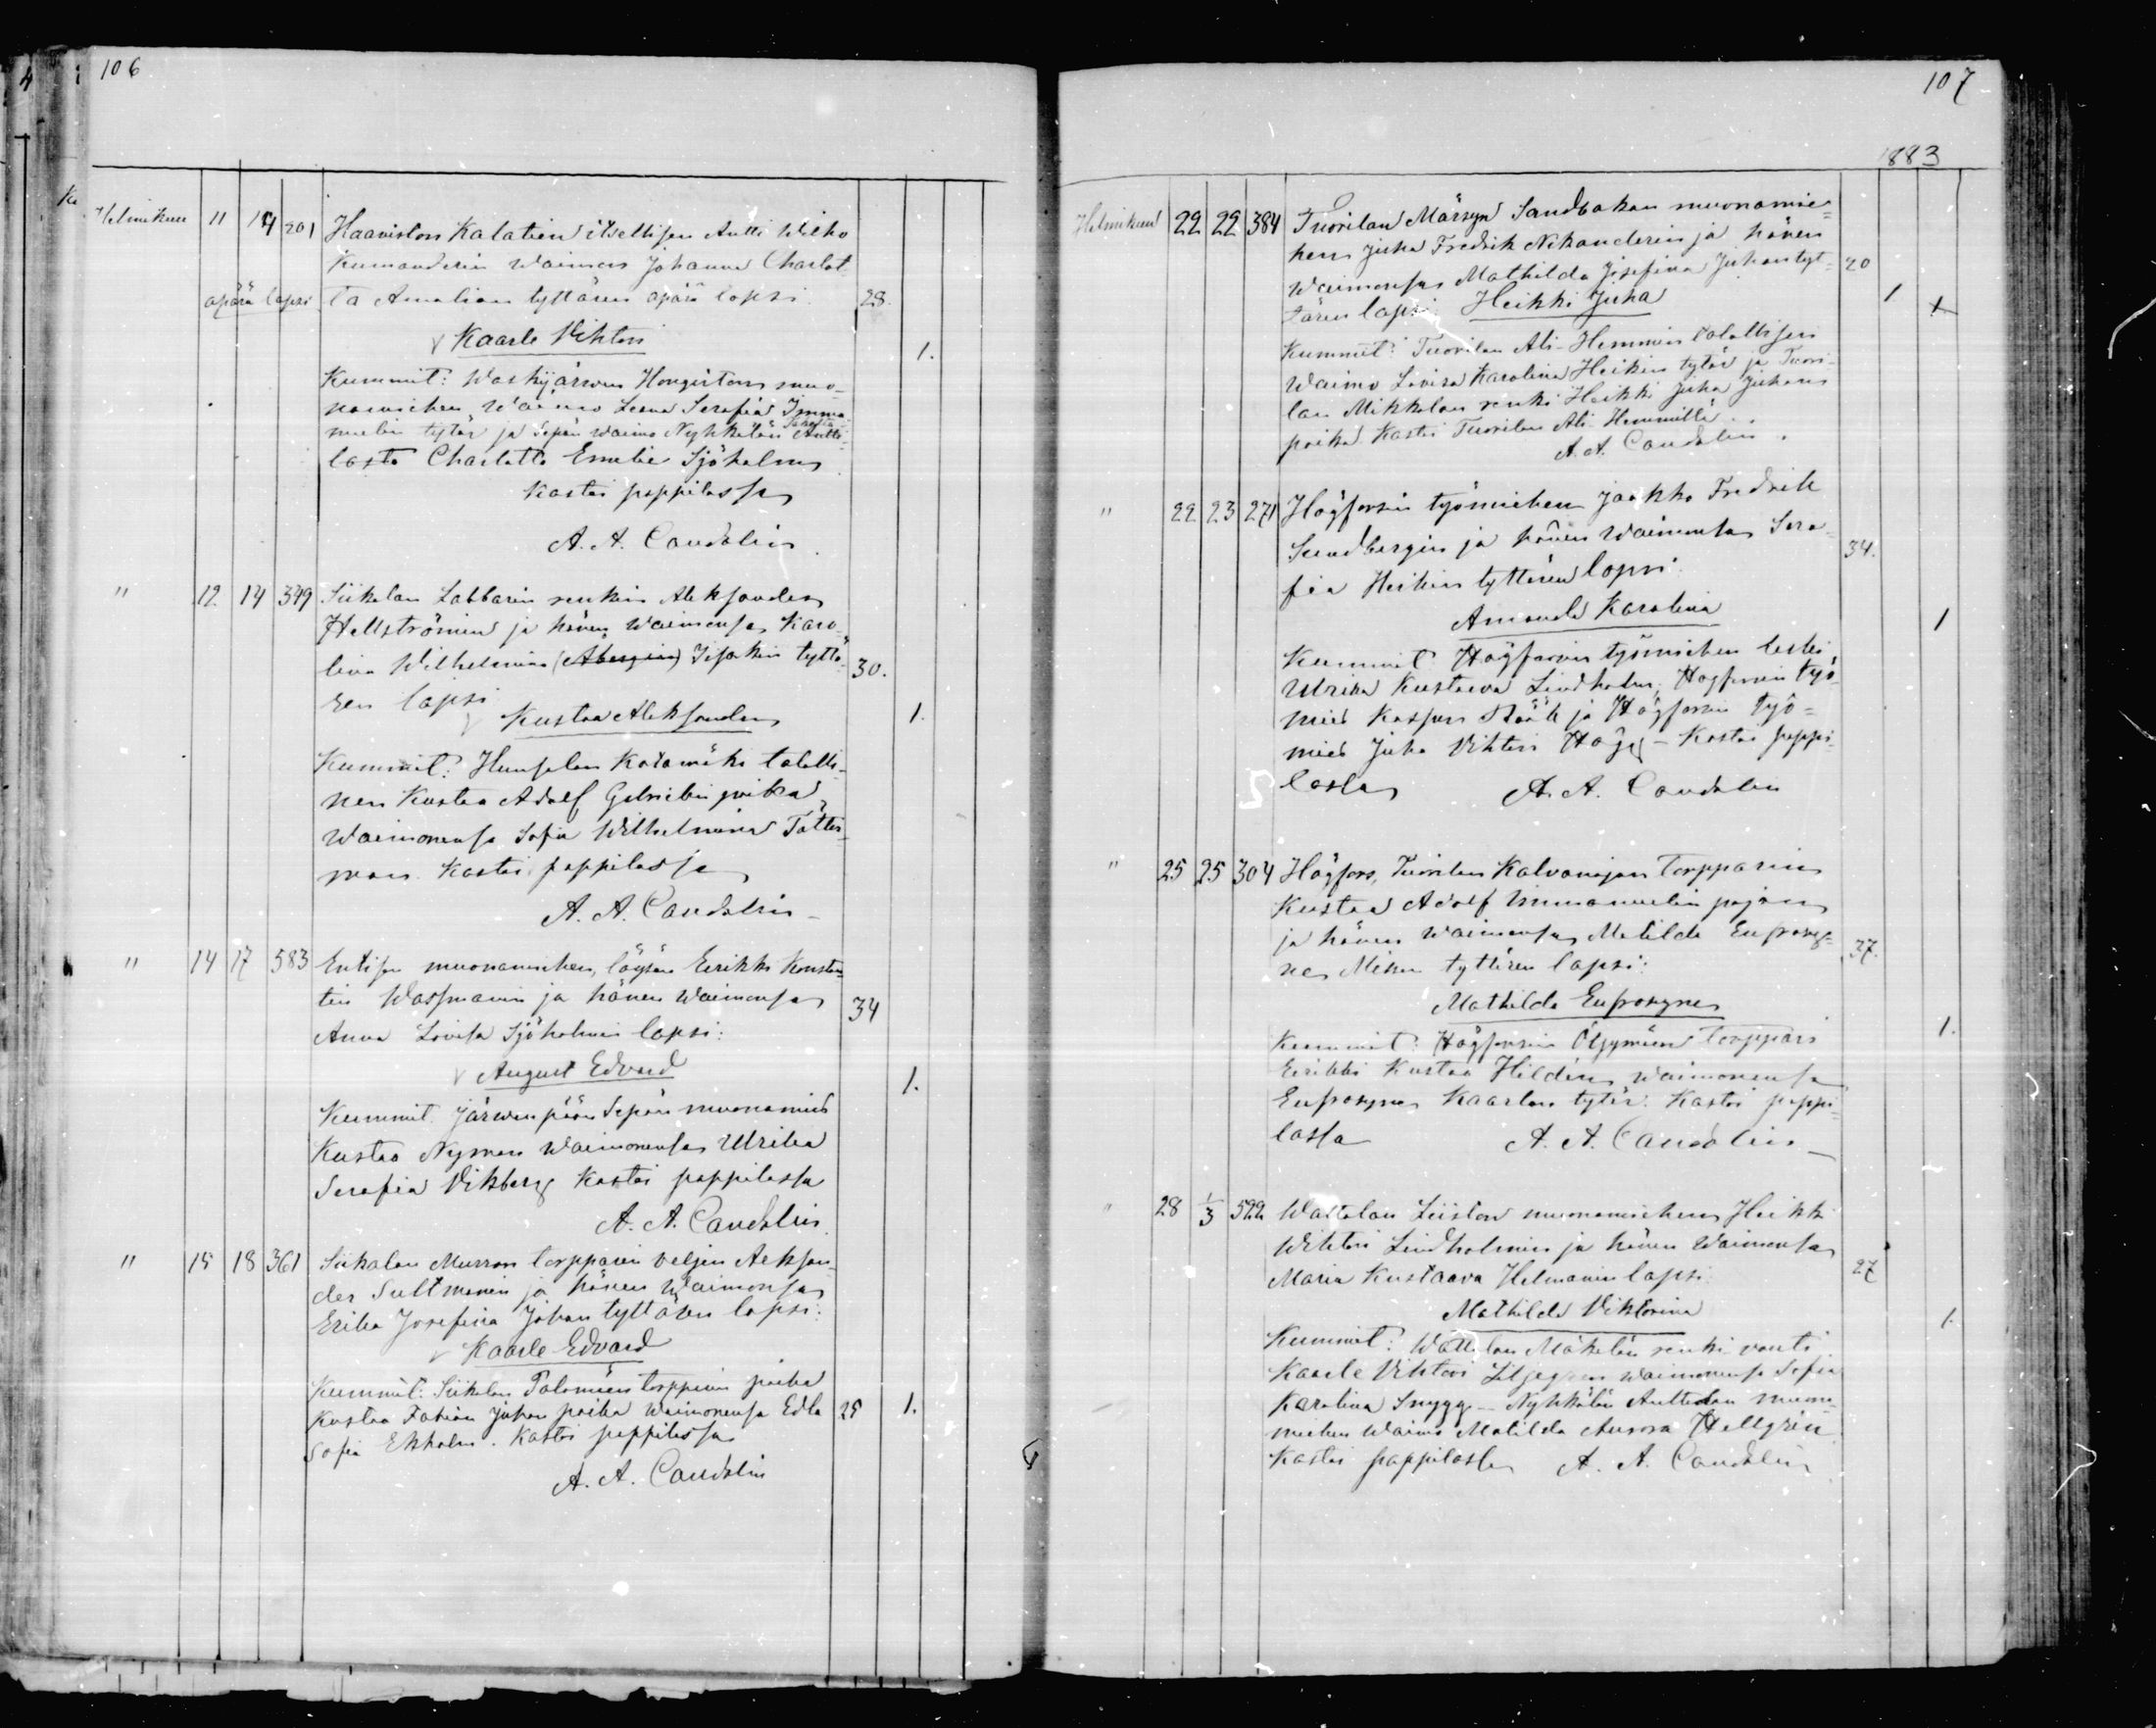 106
Helmikuu 11 14 201 Haaviston Kalatien itsellisen Antti Wilho
Kumanderin waimon Johanna Charlot
apärä lapsi ta Amalian tyttären apärä lapsi 28.
Kaarle Vihtori 1.
Kummit: Waskijärwen Hongiston muo-
namiehen waimo Leena Serafia Imma
nuelin tytär ja Sepän waimo Nyhkälän Antti-
lasta Charlotta Emelie Sjöholm
Kastoi pappilassa
A. A. Candolin
" 12. 14 349 Siikalan Labbarin renkin Aleksander
Hellströmin ja hänen waimonsa Karo-
lina Wilhelmina (Abergin) Isakin tyttä- 30.
ren lapsi
Kustaa Aleksander 1.
Kummit: Hunsalan Katamäki talolli-
nen Kustaa Adolf Gabrielin poika
waimonensa Sofia Wilhelmina Tötter-
man. Kastoi pappilassa
A. A. Candolin
" 14 17 583 Entisen muonamiehen, löysän Eerikki Konstan
tin Wassmanin ja hänen waimonsa 34
Anna Lovisa Sjöholmin lapsi:
August Edvard 1.
Kummit Järwenpään Sepän muonamies
Kustaa Nyman waimonensa Ulrika
Serafia Vikberg Kastoi pappilassa
A. A. Candolin.
" 15 18 361 Siikalan Murron torpparin veljen Aleksan-
der Sultmanin ja hänen waimonsa
Erika Josefina Johan tyttären lapsi:
Kaarle Edvard
Kummit: Siikalan torpparin poika
Kustaa Fabian Juhan poika waimonensa Edla 25 1.
Sofia Ekholm. Kastoi pappilassa
A. A. Candolin
107
1883
Helmikuu 22 22 384 Tuorilan Märsyn Sandbakan muonamie-
hen Juha Fredrik Nikanderin ja hänen
waimonsa Mathilda Josefina Juhan tyt- 20
tären lapsi: Heikki Juha 1
Kummit: Tuorilan Ali-Hemmin talollisen
waimo Lovisa Karolina Heikin tytär ja Tuori-
lan Mikkolan renki Heikki Juha Juhan
poika. Kastoi Tuorilan Ali Hemmillä
A. A. Candolin.
" 22 23 271 Högforsin työmiehen Jaakko Fredrik
Sundbergin ja hänen waimonsa Sera- 34.
fia Heikin tyttären lapsi
Amanda Karolina 1
Kummit Högforsin työmiehen leski
Ulrika Kustaava Lindholm, Högforsin työ-
mies Kasper Stååk ja Högforsin työ-
mies Juha Vihtori Hägg - Kastoi pappi-
lassa A. A. Candolin
" 25 25 304 Högfors, Tuorilan Kalvonojan torpparin
Kustaa Adolf Immanuelin pojan
ja hänen waimonsa Matilda Eufrosy- 37.
ne, Mikon tyttären lapsi:
Mathilda Eufrosyne 1.
Kummit: Högforsin Öljymäen torppari
Eerikki Kustaa Hilden waimonensa
Eufrosyne Kaarlon tytär. Kastoi pappi-
lassa A. A. Candolin
" 28 1/3 522 Wattolan Liiston muonamiehen Heikki
Wihtori Lindholmin ja hänen waimonsa
Maria Kustaava Helmanin lapsi 27
Mathilda Viktorina 1.
Kummit: Wattolan Mäkelän renki vouti
Kaarle Vihtori Liljegren waimonensa Sofia
Karolina Snygg - Nyhkälän Anttilan muona-
miehen waimo Matilda Aurora Hellgren
Kastoi pappilassa A. A. Candolin